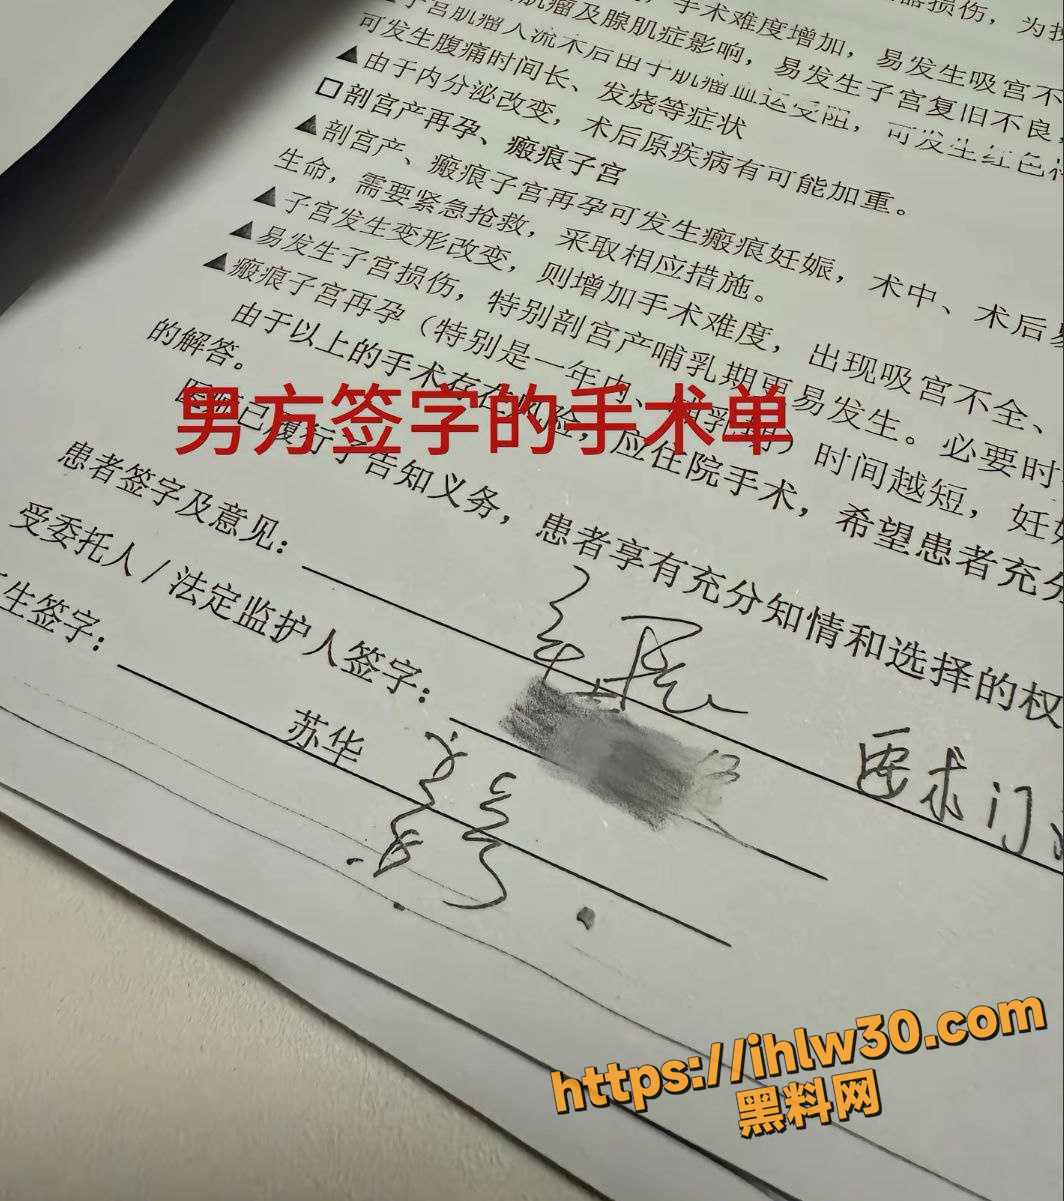 手术难度增加，易发生吸宫不
肌瘤及腺肌症影响，易发生子宫复旧不良，
子宫肌瘤人流术后由于肌瘤血运受阻，可发生红色
可发生腹痛时间长、发烧等症状
▲由于内分泌改变，术后原疾病有可能加重。
□剖宫产再孕、瘢痕子宫
▲剖宫产、瘢痕子宫再孕可发生瘢痕妊娠，术中、术后
生命，需要紧急抢救，采取相应措施。
▲子宫发生变形改变，则增加手术难度，出现吸宫不全、
▲易发生子宫损伤，特别剖宫产哺乳期更易发生。必要时
▲瘢痕子宫再孕（特别是一年内、）时间越短，妊
由于以上的手术存在风险，应住院手术，希望患者充分
的解答。
已履行了告知义务，患者享有充分知情和选择的权
男方签字的手术单
患者签字及意见：
要求门
受委托人/法定监护人签字：
生签字：
苏华
https://ihlw30.com
黑料网